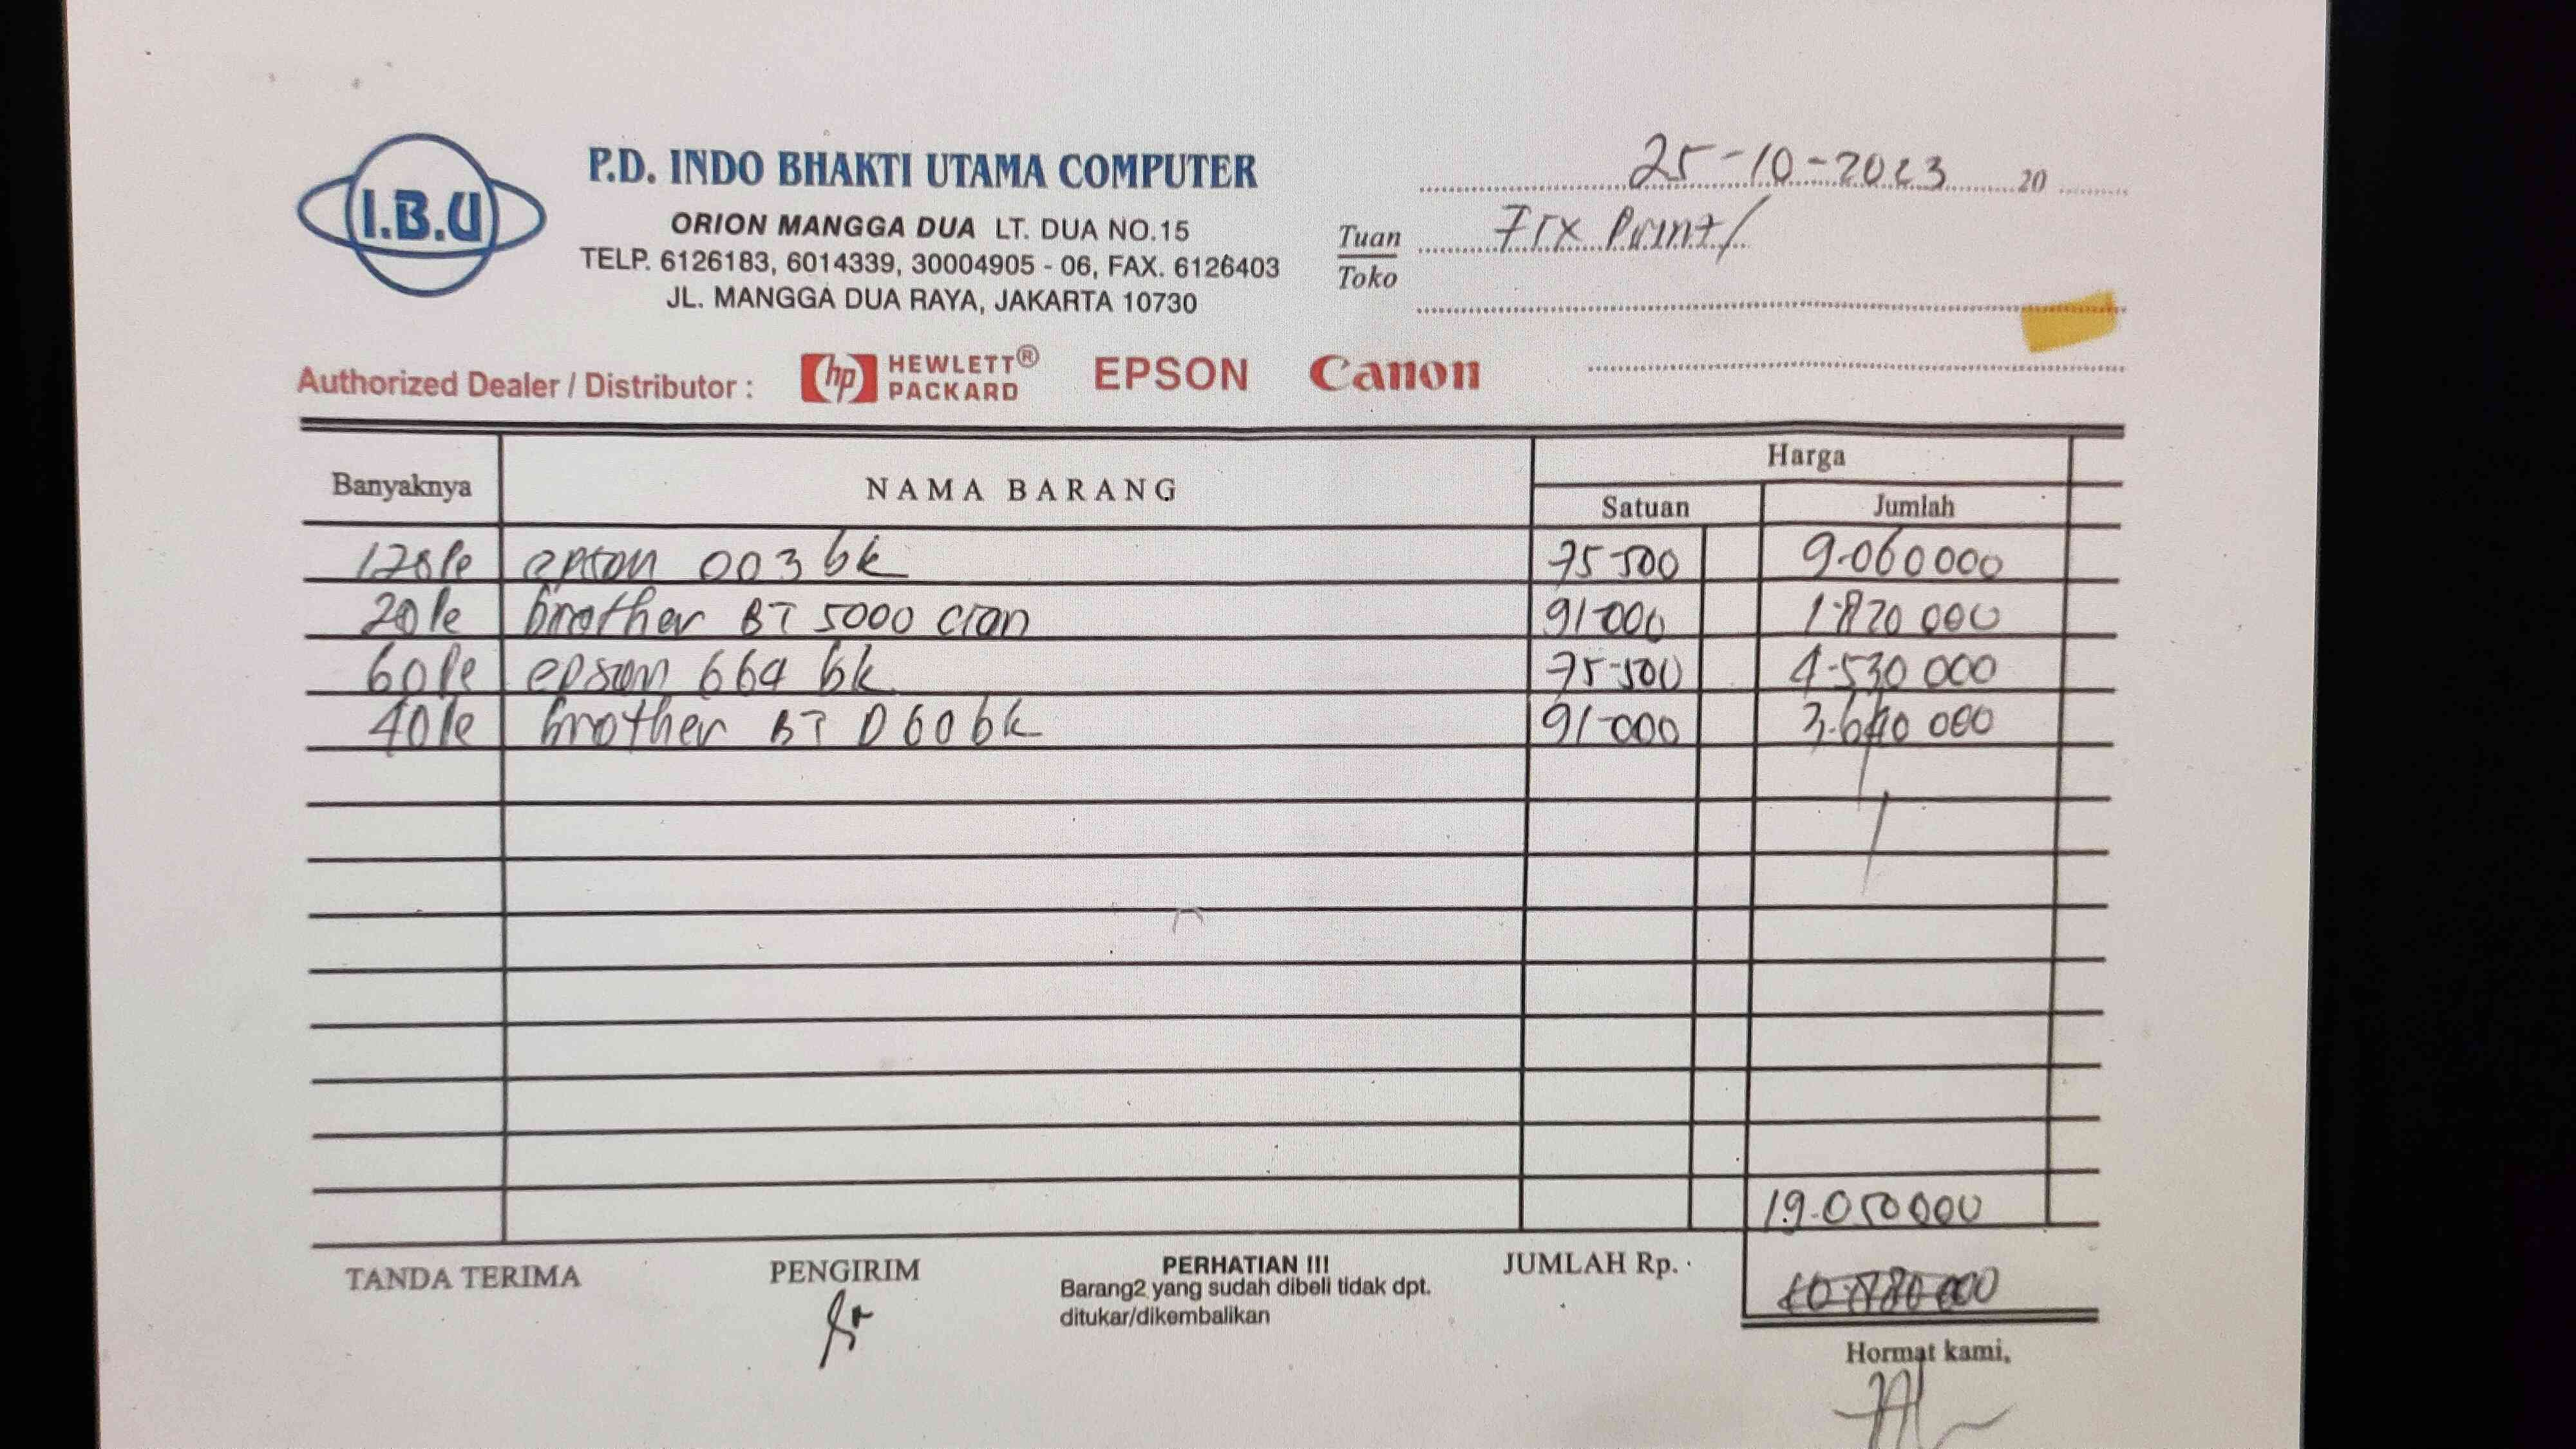 I.B.U
P.D. INDO BHAKTI UTAMA COMPUTER
ORION MANGGA DUA LT. DUA NO.15
TELP. 6126183, 6014339, 30004905 - 06, FAX. 6126403
JL. MANGGA DUA RAYA, JAKARTA 10730
25-10-2023 20
Tuan
Toko
Print
Authorized Dealer / Distributor : hp HEWLETT® PACKARD EPSON Canon
Banyaknya NAMA BARANG Harga
Satuan Jumlah
120 epson 003 bk 75-500 9.060 000
20 brother BT 5000 cian 91-000 1.820 000
60 epson 664 bk 75-500 4.530 000
40 brother BT D60 bk 91-000 3.640 000
19.050000
TANDA TERIMA PENGIRIM PERHATIAN !!! JUMLAH Rp.
Barang2 yang sudah dibeli tidak dpt.
ditukar/dikembalikan
Hormat kami,